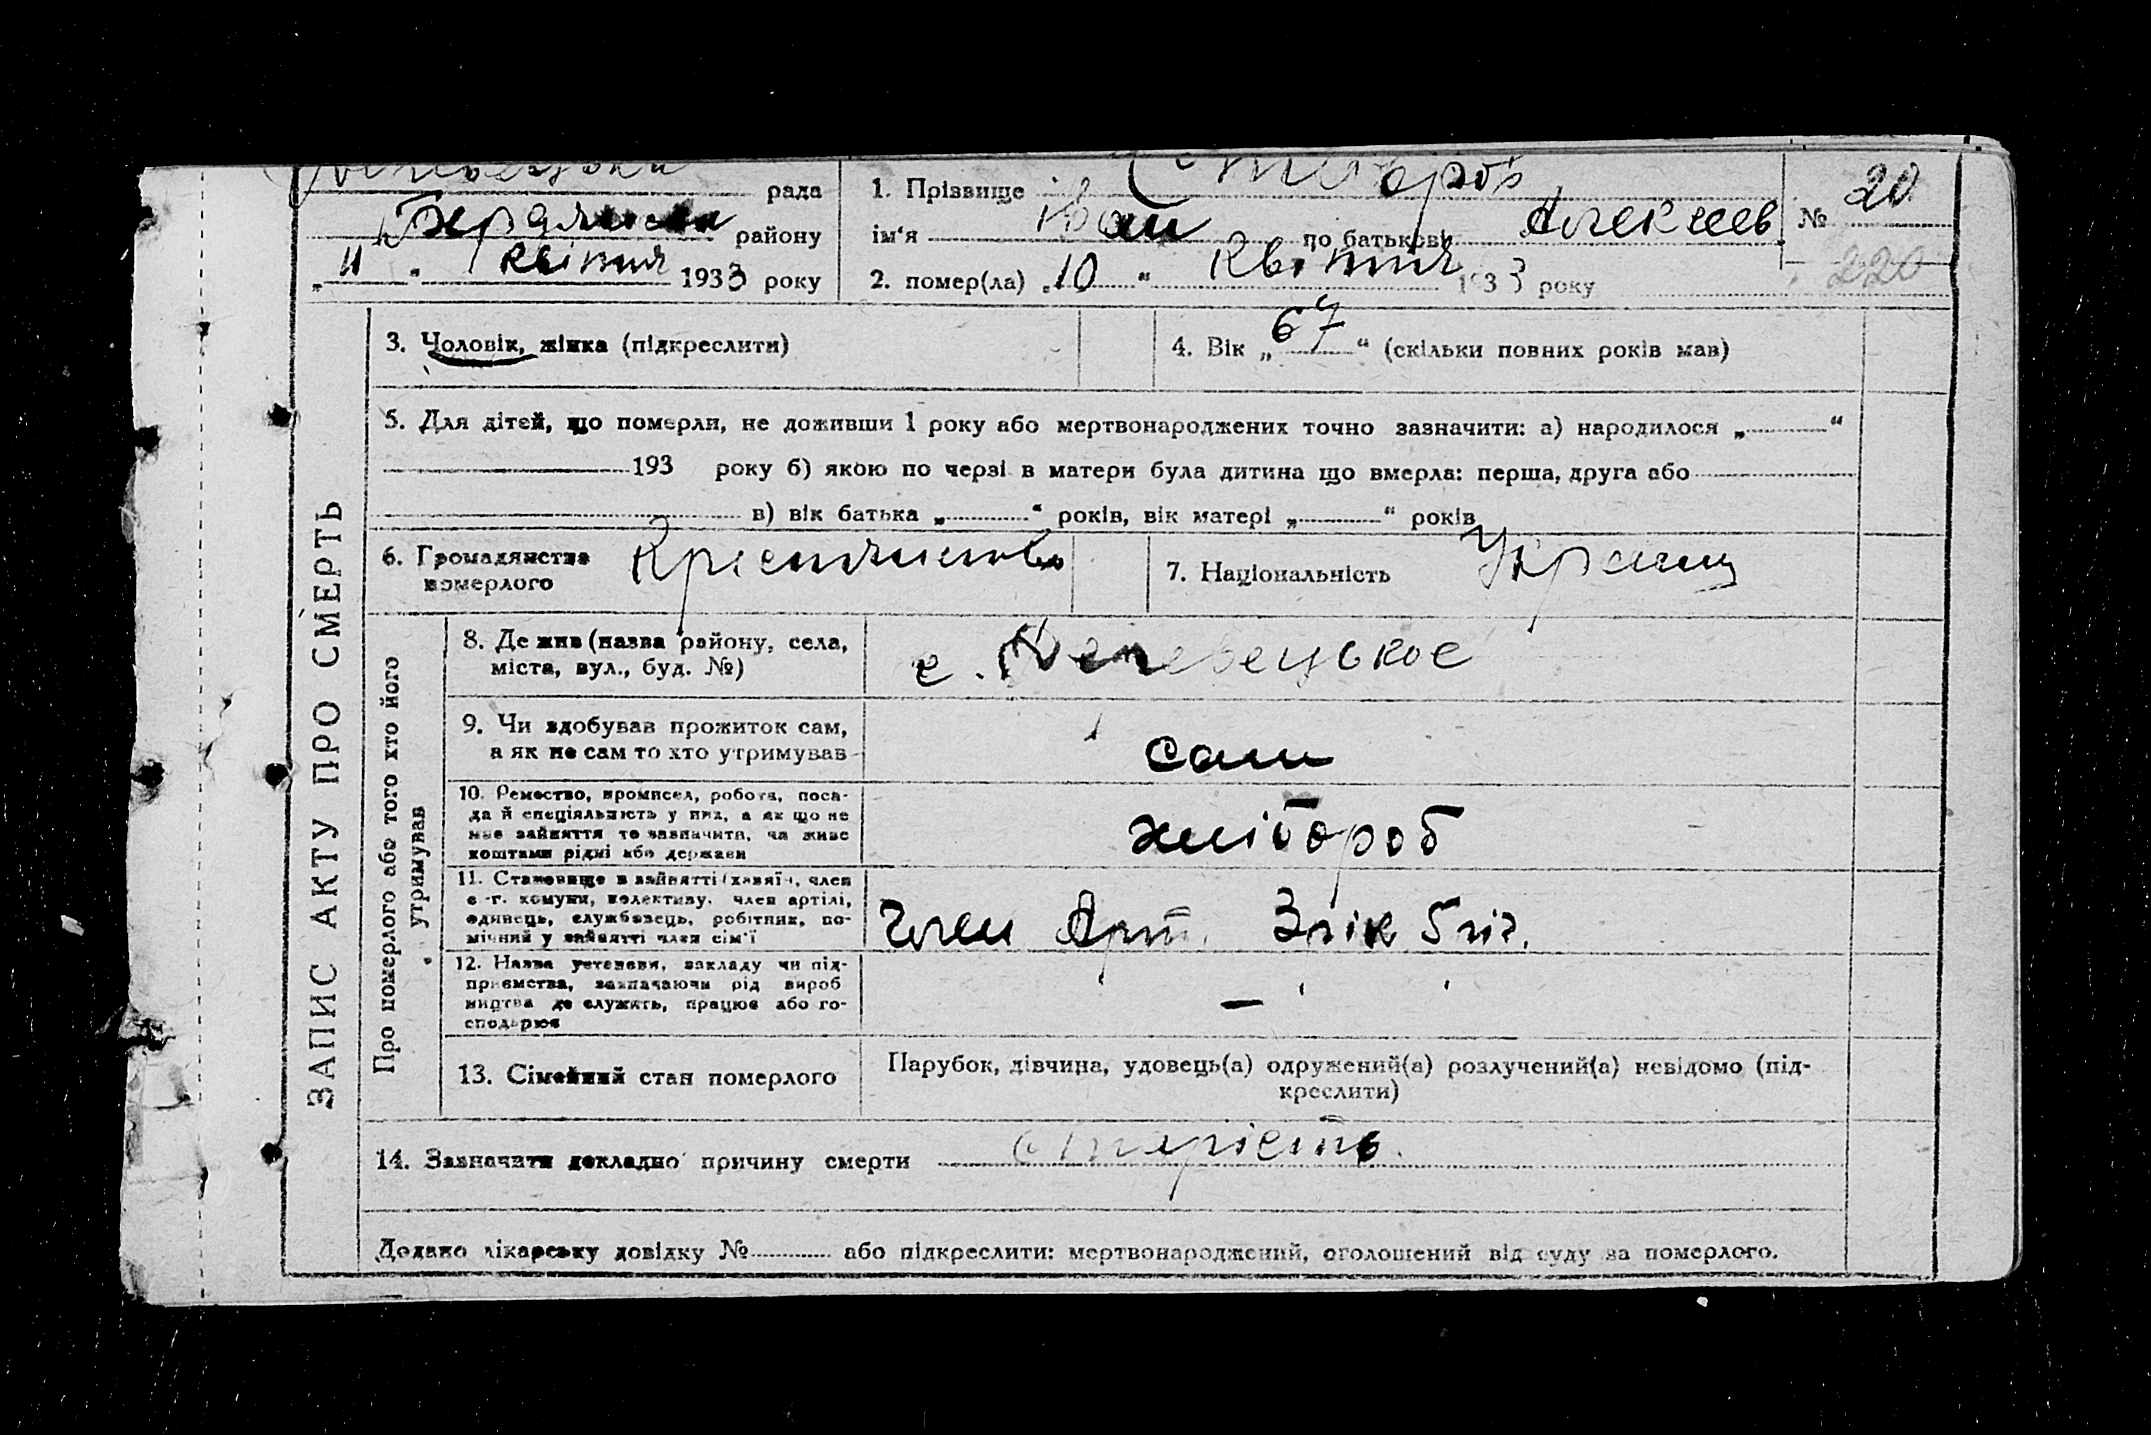 рада
району
„11“ квітня 1933 року
1. Прізвище
ім‘я Иван по батькові Алексеев
2. помер(ла) „10“ Квітня 1933 року
№ 20
220
ЗАПИС АКТУ ПРО СМЕРТЬ
3. Чоловік, жінка (підкреслити)
4. Вік „67“ (скільки повних років мав)
5. Для дітей, що померли, не доживши 1 року або мертвонароджених точно зазначити: а) народилося „ “
193 року б) якою по черзі в матери була дитина що вмерла: перша, друга або
в) вік батька „ “ років, вік матері „ “ років
6. Громадянство
померлого
7. Національність Украинц
Про померлого або того хто його
утримував
8. Де жив (назва району, села,
міста, вул., буд. №)
с.
9. Чи здобував прожиток сам,
а як не сам то хто утримував
сам
10. Ремество, промисел, робота, поса-
да й спеціяльність у них, а як що не
має зайняття то зазначити, чи живе
коштами рідні або держави
хлібороб
11. Становище в зайнятті (хазяїн, член
с.-г. комуни, колективу, член артілі,
одинець, службовець, робітник, по-
мічний у зайнятті член сім‘ї
Член Арт.
12. Назва установи, закладу чи під-
приємства, зазначаючи рід вироб
ництва де служить, працює або го-
сподарює
—
13. Сімейний стан померлого
Парубок, дівчина, удовець(а) одружений(а) розлучений(а) невідомо (під-
креслити)
14. Зазначити докладно причину смерти старість.
Додано лікарську довідку № або підкреслити: мертвонароджений, оголошений від суду за померлого.